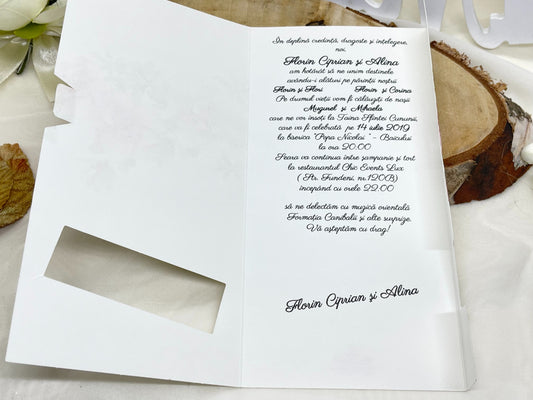 În deplină credință, dragoste și înțelegere,
noi,
Florin Ciprian și Alina
am hotărât să ne unim destinele
avându-i alături pe părinții noștri
Florin și Flori Florin și Corina
Pe drumul vieții vom fi călăuziți de nașii
Mugurel și Mihaela
care ne vor însoți la Taina Sfintei Cununii,
care va fi celebrată pe 14 iulie 2019
la biserica "Popa Nicolai" - Baicului
la ora 20:00
Seara va continua între șampanie și tort
la restaurantul Chic Events Lux
( Str. Fundeni, nr.120B)
începând cu orele 22:00
să ne delectăm cu muzică orientală
Formația Canibalii și alte surprize.
Vă așteptăm cu drag!
Florin Ciprian și Alina